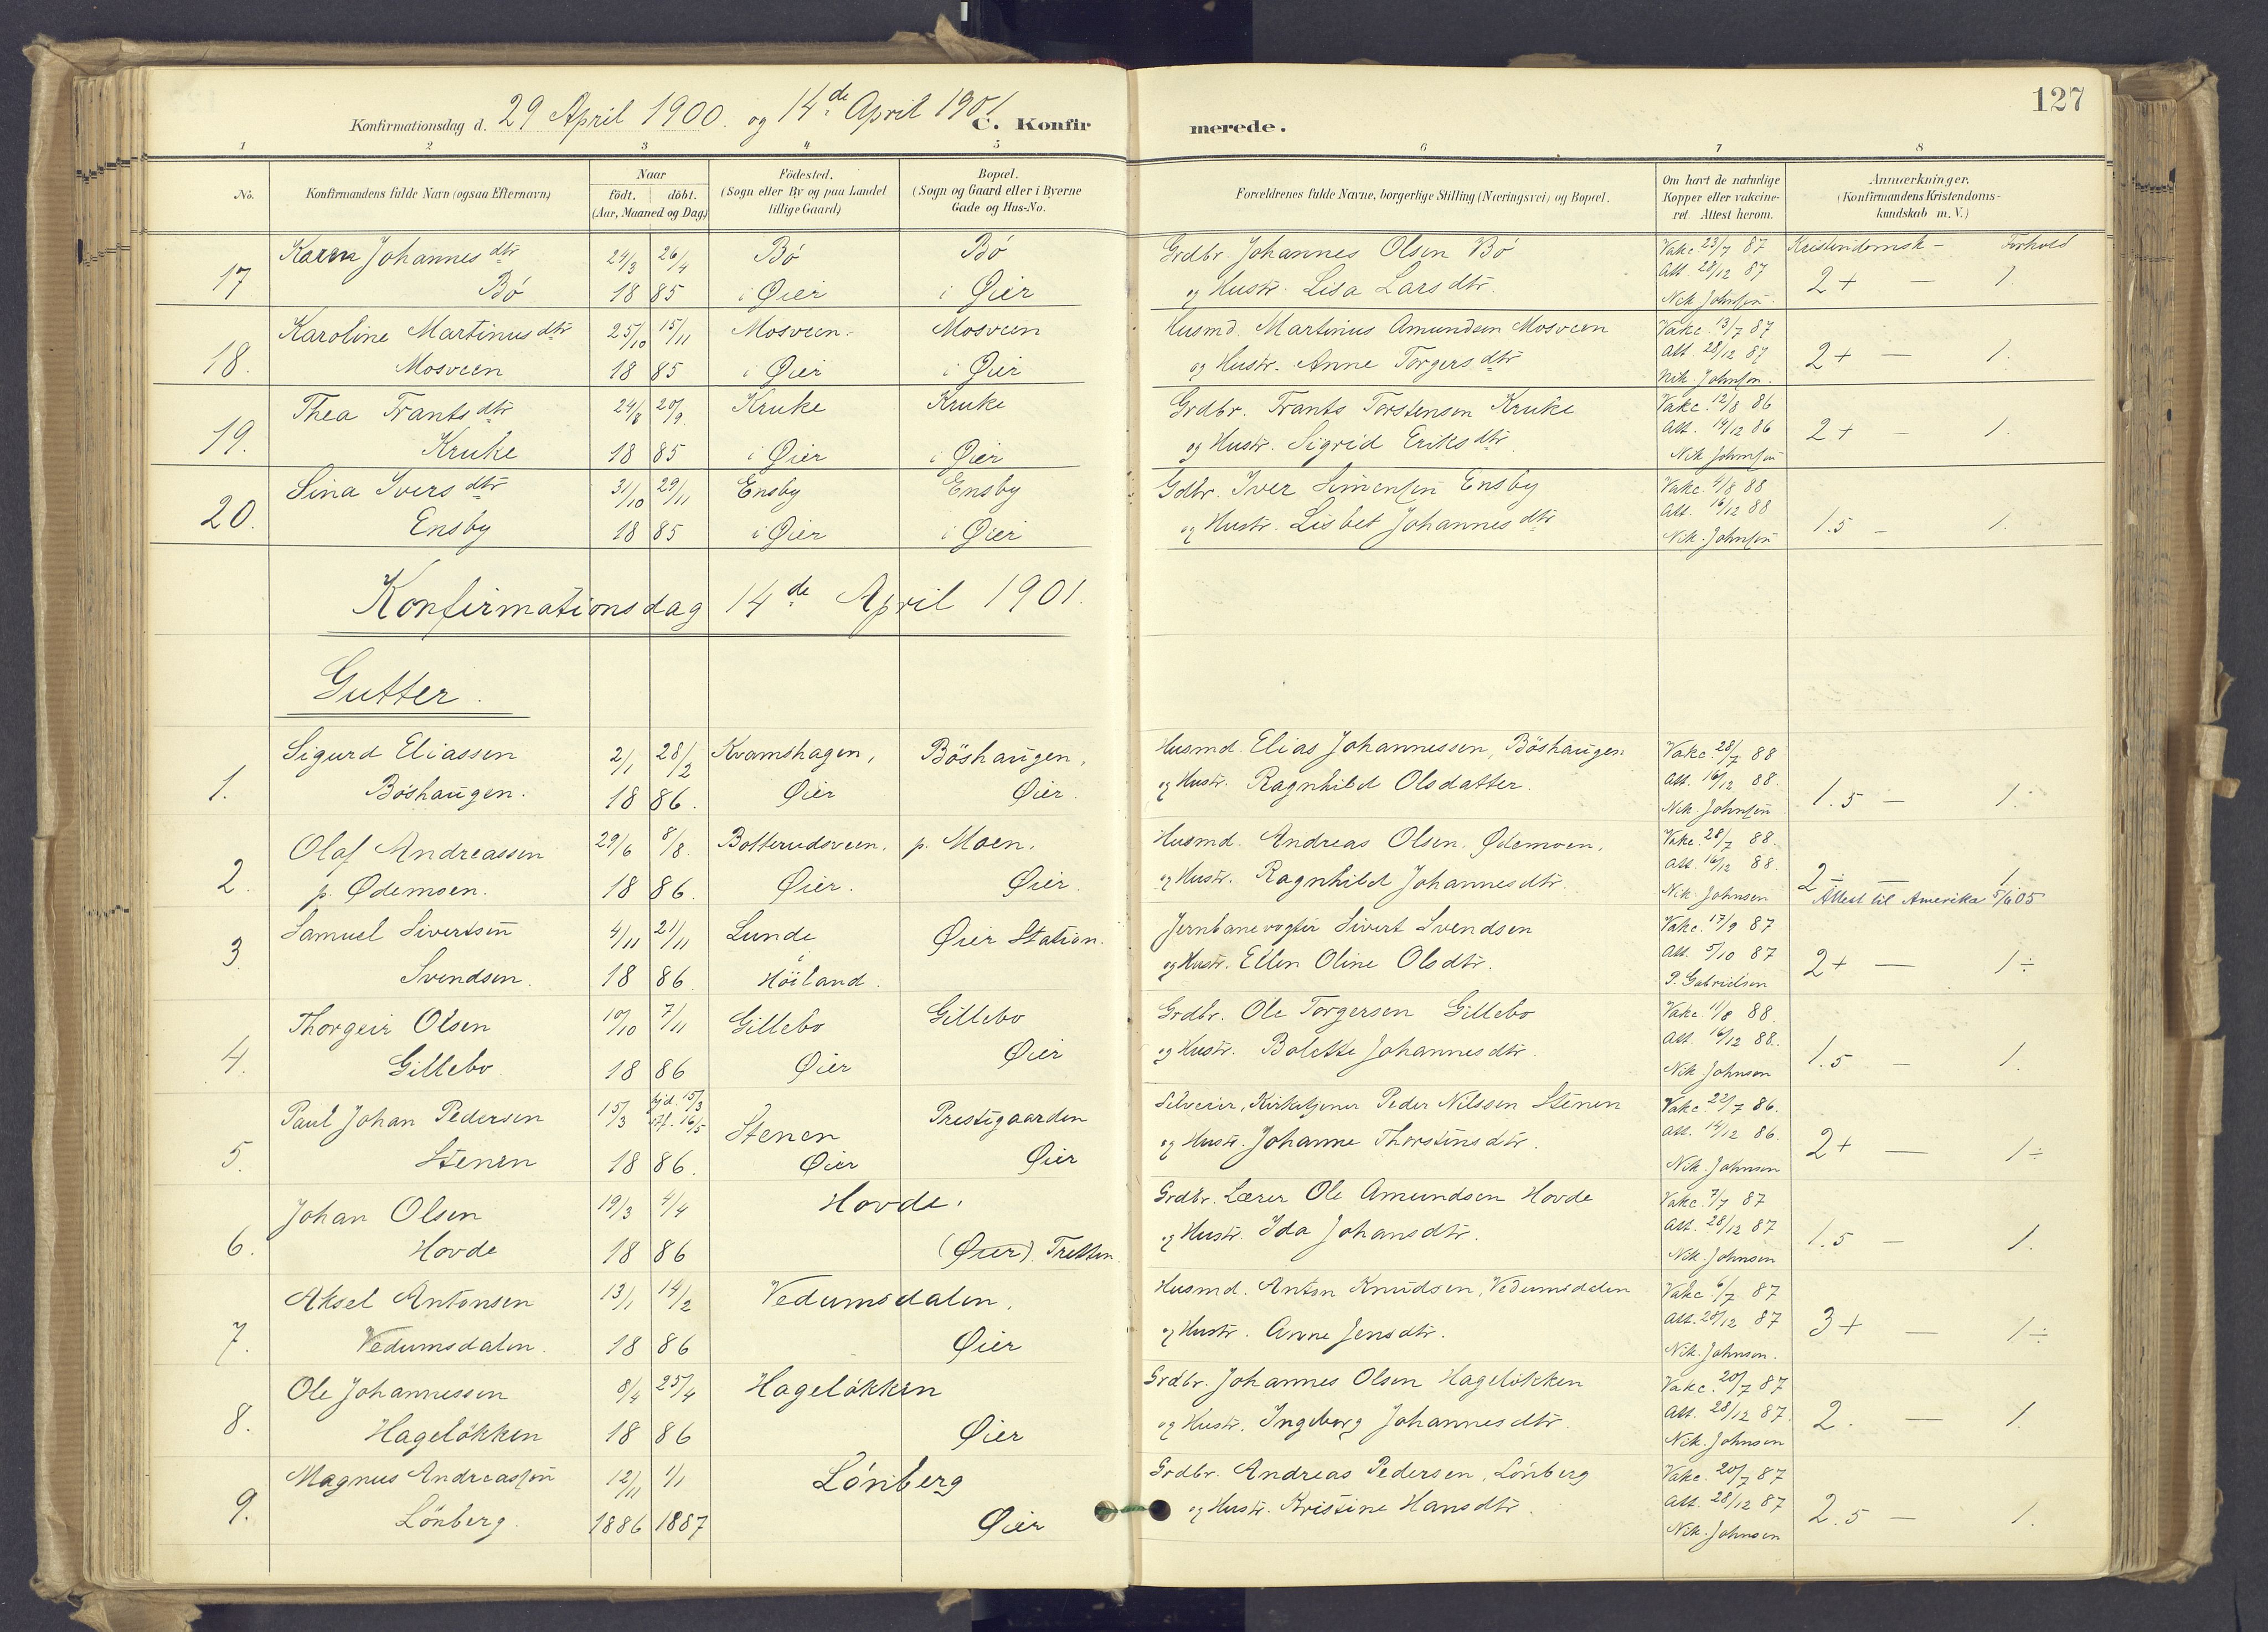 127
Konfirmationsdag d. 29 April 1900. og 14de April 1901
C. Konfirmerede.
1 2 3 4 5 6 7 8
No. Konfirmandens fulde Navn (ogsaa Efternavn) Naar födt. döbt. (Aar, Maaned og Dag) Födested. (Sogn eller By og paa Landet tillige Gaard) Bopæl. (Sogn og Gaard eller i Byerne Gade og Hus-No. Forældrenes fulde Navne, borgerlige Stilling (Næringsvei) og Bopæl. Om havt de naturlige Kopper eller vakcineret. Attest herom. Anmærkninger. (Konfirmandens Kristendomskundskab m. V.)
Karen Johannesdtr 24/3 26/4 Bö Bö Grdbr Johannes Olsen Bö Vakc 23/7 87 Kristendomsk – Forhold
17 Bö 18 85 i Øier i Øier og Hustr. Lisa Larsdtr. Att. 28/12 87 2+ — 1.
Nik Johnsen
Karoline Martinusdtr 25/10 15/11 Mosveen. Mosveen Husmd. Martinus Amundsen Mosveen Vakc. 13/7 87
18. Mosveen 18 85 i Øier i Øier og Hustr. Anne Torgersdtr Att 28/12 87 2+ — 1.
Nik. Johnsen.
Thea Frantsdtr 24/8 20/9 Kruke Kruke Grdbr. Frants Torstensen Kruke Vakc. 12/8 86
19. Kruke 18 85 i Øier i Øier og Hustr. Sigrid Eriksdtr Att. 14/12 86 2+ — 1.
Nik Johnsen
Sina Iversdtr 31/10 29/11 Ensby Ensby Gdbr. Iver Simensen Ensby Vakc. 4/8 88
20. Ensby 18 85 i Øier i Øier og Hustr. Lisbet Johannesdtr Att. 16/12 88 1.5 — 1.
Nik. Johnsen
Konfirmationsdag 14de April 1901.
Gutter.
Sigurd Eliassen 2/1 28/2 Kvamshagen, Böshaugen, Husmd. Elias Johannessen, Böshaugen Vakc. 28/7 88
1. Böshaugen. 18 86. Øier Øier. og Hustr. Ragnhild Olsdatter. Att. 16/12 88. 1.5 — 1.
Nik. Johnsen
Olaf Andreassen 29/6 8/8. Botterudsveen. p. Moen. Husmd. Andreas Olsen, Ødemoen. Vakc. 28/7 88.
2. p. Ødemoen. 18 86. Øier. Øier. og Hustr. Ragnhild Johannesdtr. Att. 16/12 88. 2 ÷ — 1
Nik Johnsen Attest til Amerika 5/6 05
Samuel Sivertsen 4/11 21/11 Lunde Øier Station. Jernbanevogter Sivert Svendsen Vakc. 17/9 87
3 Svendsen. 18 86. i Höiland. og Hustr. Ellen Oline Olsdtr. Att. 5/10 87 2+ — 1÷
P. Gabrielsen
Thorgeir Olsen 10/10 7/11 Gillebo Gillebo Grdbr. Ole Torgersen Gillebo Vakc. 11/8 88.
4. Gillebo 18 86 Øier Øier og Hustr. Bolette Johannesdtr. Att. 16/12 88. 1.5 — 1.
Nik Johnsen
Paul Johan Pedersen 15/3 hjd. 15/3 stf. 16/5 Stenen Prestegaarden Selveier, Kirketjener Peder Nilssen Stenen Vakc. 22/7 86.
5. Stenen 18 86. Øier Øier og Hustr. Johanne Thorstensdtr. Att. 14/12 86. 2+ — 1÷
Nik. Johnsen
Johan Olsen 19/3 4/4 Hovde. Grdbr. Lærer Ole Amundsen Hovde Vakc. 7/7 87
6. Hovde 18 86 (Øier). Tretten og Hustr. Ida Johansdtr. Att. 28/12 87 1.5 — 1.
Nik. Johnsen
Aksel Antonsen 13/1 14/2 Vedumsdalen. Husmd. Anton Knudsen, Vedumsdalen Vakc 6/7 87
7. Vedumsdalen. 18 86 Øier og Hustr. Anne Jensdtr. Att. 28/12 87 3+ — 1÷
Nik. Johnsen.
Ole Johannessen 8/4 25/4 Hagelökken Grdbr. Johannes Olsen Hagelökken Vakc. 20/7 87
8. Hagelökken 18 86 Øier og Hustr. Ingeborg Johannesdtr. Att. 28/12 87 2. — 1.
Nik. Johnsen
Magnus Andreassen 12/11 1/1 Lönberg Grdbr. Andreas Pedersen, Lönberg Vakc. 20/7 87
9. Lönberg. 1886 1887 Øier og Hustr. Kristine Hansdtr. Att. 28/12 87 2.5 — 1.
Nik. Johnsen